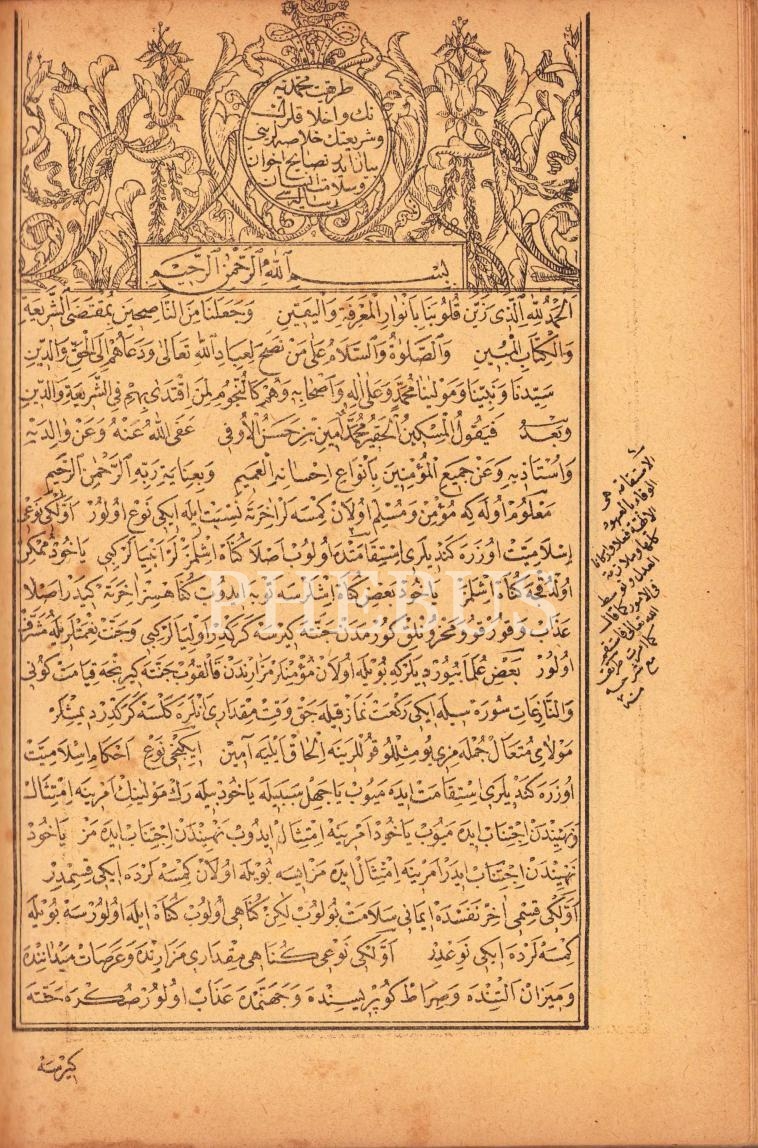 طريقت محمديه
نك واخلاقلرك
وشريعتك خلاصه لرينى
بيان ايدر نصايح اخوان
وسلامت انسان
رساله سى
بسم الله الرحمن الرحيم
الحمد لله الذى زين قلوبنا بانوار المعرفة واليقين وجعلنا من الناصحين بمقتضى الشريعة
والكتاب المبين والصلوة والسلام على من نصح لعباد الله تعالى ودعاهم الى الحق والدين
سيدنا ونبينا ومولينا محمد وعلى اله واصحابه وهم كالنجوم لمن اقتدى بهم فى الشريعة والدين
وبعد فيقول المسكين الحقير محمد امين بن حسن الاوفى عفى الله عنه وعن والديه
واستاذيه وعن جميع المؤمنين بانواع احسانه العميم وبعناية ربه الرحمن الرحيم
معلوم اوله كه مؤمن ومسلم اولان كمسه لر اخرته نسبت ايله ايكى نوع اولور اولكى نوعى
اسلاميت اوزره كنديلرى استقامتده اولوب اصلا كناه اشلمزلر انبيالر كبى ياخود ممكن
اولدقجه كناه اشلمز ياخود بعض كناه اشلرسه توبه ايدوب كناهسز اخرته كيدر اصلا
عذاب وقورقو ومحزونلق كورمدن جنته كيرسه كركدر اوليالر كبى وجنت نعمتلريله مشرف
اولور بعض علما بيورديلر كه بويله اولان مؤمنلر مزارندن قالقوب جنته كيرنجه قيامت كونى
والنازعات سوره سيله ايكى ركعت نماز قيله جق وقت مقدارى انلره كلسه كركدر ديمشلر
مولاى متعال جمله مزى بو مثللو قوللرينه الحاق ايليه آمين ايكنجى نوع احكام اسلاميت
اوزره كنديلرى استقامت ايده ميوب يا جهل سببيله ياخود بيله رك مولينك امرينه امتثال
ونهيندن اجتناب ايده ميوب ياخود امرينه امتثال ايدوب نهيندن اجتناب ايده مز ياخود
نهيندن اجتناب ايدر امرينه امتثال ايده مز ايسه بويله اولان كمسه لرده ايكى قسمدر
اولكى قسمى اخر نفسده ايمانى سلامت بولوب لكن كناهى اولوب كناه ايله اولورسه بويله
كمسه لرده ايكى نوعدر اولكى نوعى كناهى مقدارى مزارنده وعرصات ميداننده
وميزان التنده وصراط كوپريسنده وجهنمده عذاب اولور صكره جنته
كيرسه
الاستقامة هى
الوفاء بالعهود
كلها وملازمة
فى الامور كما قال
الله تعالى فاستقم
كما امرت
PHEBUS